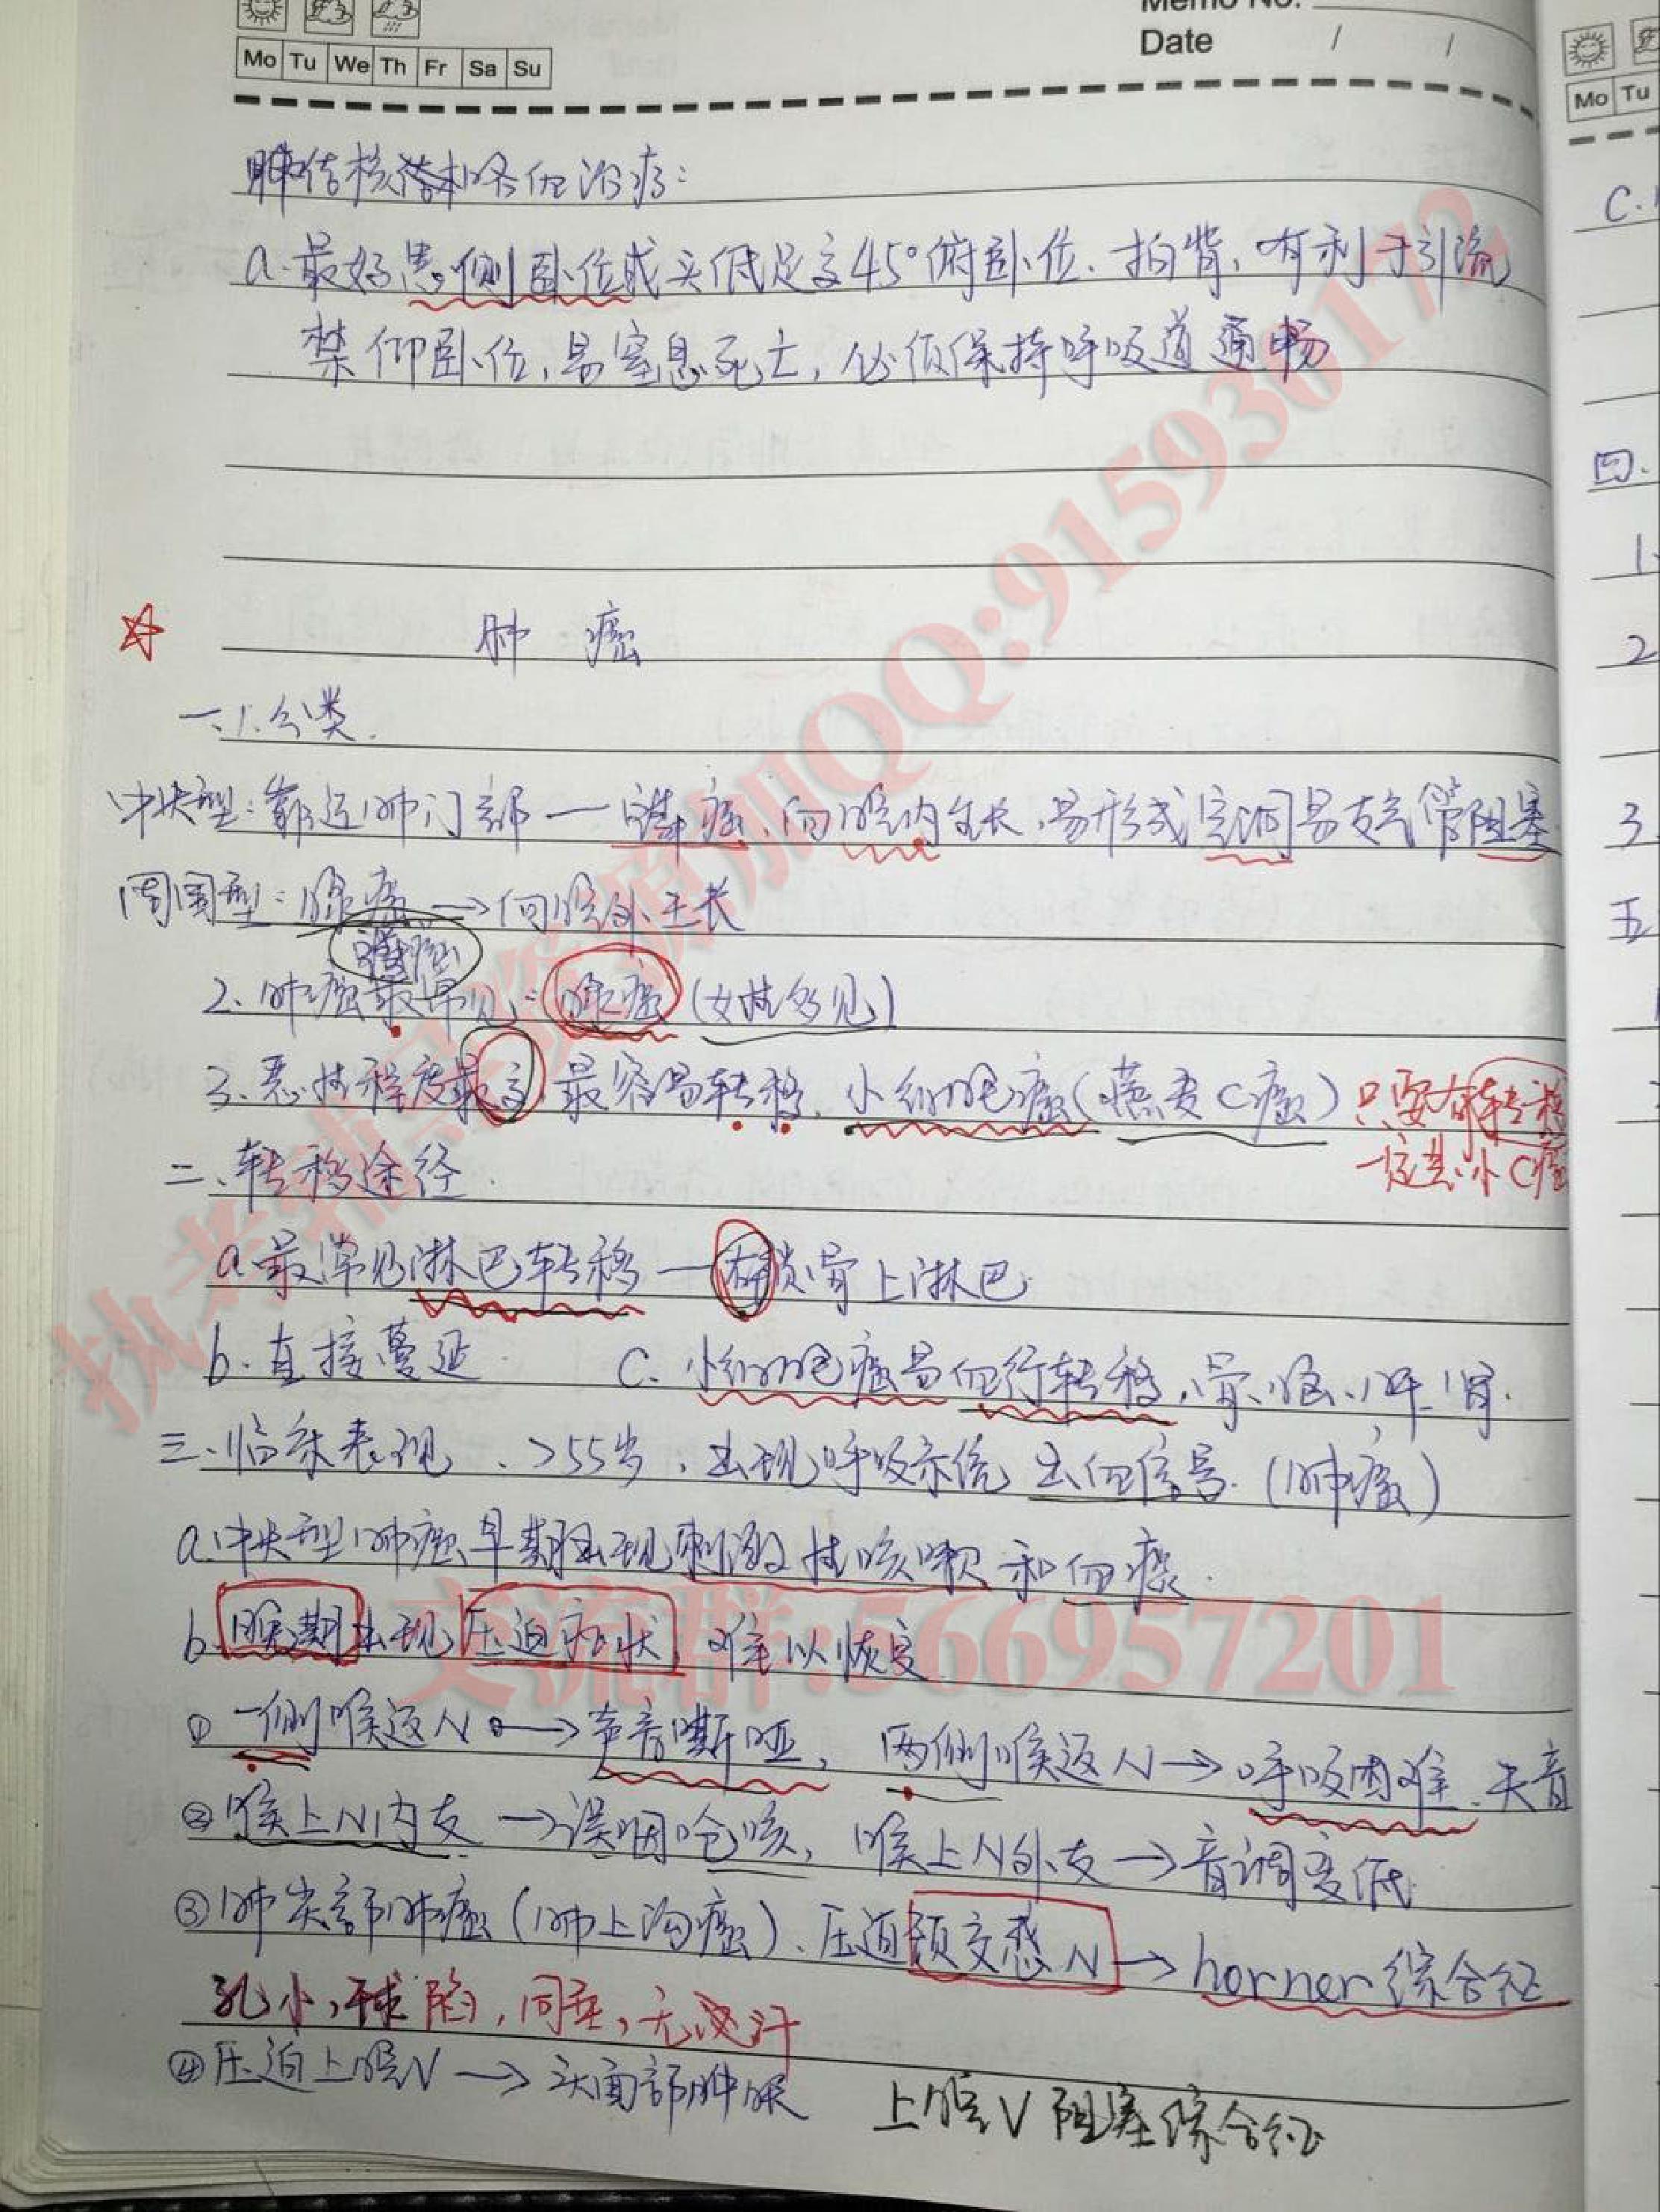 Memo No.
Mo Tu We Th Fr Sa Su
Date / /
Mo Tu
肺结核咯血治疗:
a.最好患侧卧位或头低足高45°俯卧位.拍背,有利于引流
禁仰卧位,易窒息死亡,必须保持呼吸道通畅
肺 癌
一、1.分类.
中央型:靠近肺门部—鳞癌,向腔内生长,易形成空洞易支气管阻塞
周围型:腺癌→向腔外生长
鳞癌
2.肺癌最常见:腺癌(女性多见)
3.恶性程度最高,最容易转移,小细胞癌(燕麦C癌)只要有转移
一定是小C癌
二、转移途径.
a.最常见淋巴转移—右锁骨上淋巴.
b.直接蔓延. C.小细胞癌易血行转移,骨、脑、肝、肾.
三、临床表现、>55岁,出现呼吸系统出血信号.(肺癌)
a.中央型肺癌早期出现刺激性咳嗽和血痰.
b.晚期出现压迫症状,难以恢复
①一侧喉返N→声音嘶哑,两侧喉返N→呼吸困难、失音
②喉上N内支→误咽呛咳,喉上N外支→音调变低
③肺尖部肺癌(肺上沟癌)、压迫颈交感N→horner综合征
孔小,球陷,同垂,无汗
④压迫上腔V→头面部肿胀 上腔V阻塞综合征
C.
四.
1.
2
3
五
资源加QQ:915930172
交流群:566957201